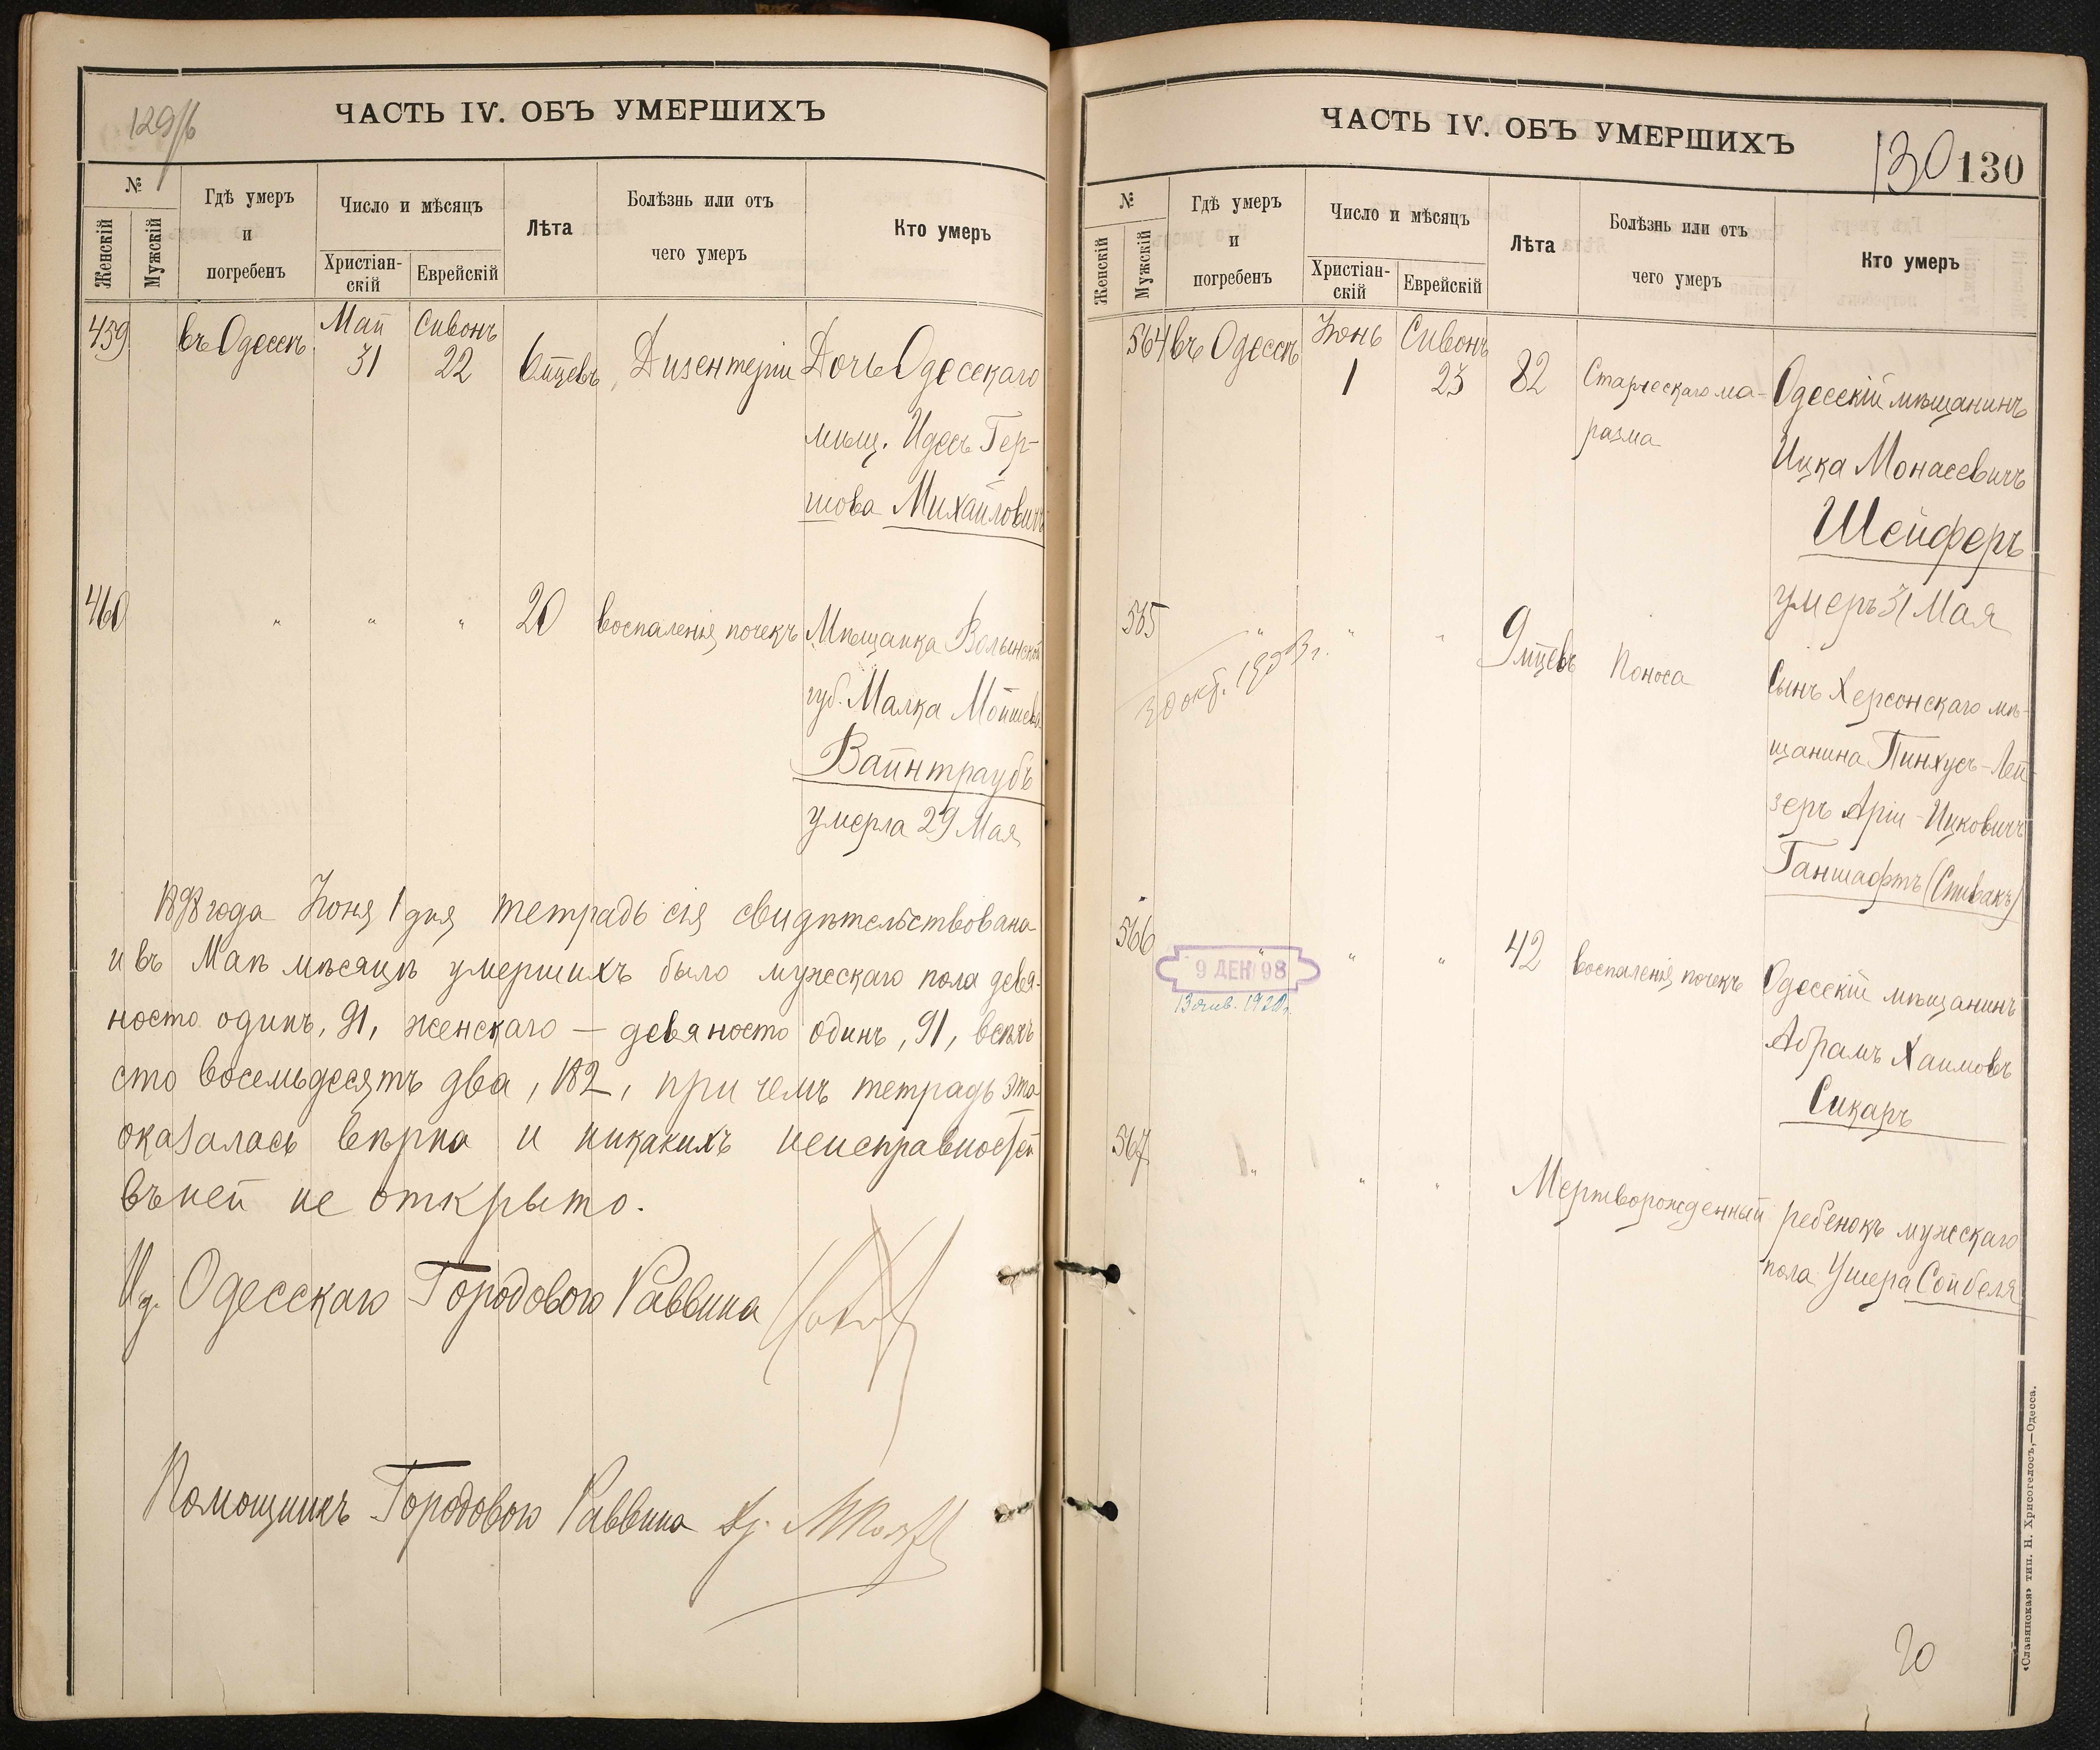 129/б
ЧАСТЬ IV. ОБЪ УМЕРШИХЪ
№
Женскій
Мужскій
Гдѣ умеръ
и
погребенъ
Число и мѣсяцъ
Христіан-
скій
Еврейскій
Лѣта
Болѣзнь или отъ
чего умеръ
Кто умеръ
459 въ Одессѣ Май 31 Сивонъ 22 6 мцевъ Дизентеріи Дочь Одесскаго
мѣщ. Идесъ Гер-
шова Михайловичъ
460 " " " 20 воспаленія почекъ Мѣщанка Волынской
губ. Малка Мойшева
Вайнтраубъ
умерла 29 Мая
1898 года Іюня 1 дня тетрадь сія свидѣтельствована
и въ Маѣ мѣсяцѣ умершихъ было мужескаго пола девя-
носто одинъ, 91, женскаго — девяносто одинъ, 91, всѣхъ
сто восемьдесятъ два, 182, при чемъ тетрадь эта
оказалась вѣрна и никакихъ неисправностей
въ ней не открыто.
И.д. Одесскаго Городового Раввина
Помощникъ Городового Раввина
ЧАСТЬ IV. ОБЪ УМЕРШИХЪ
130 130
№
Женскій
Мужскій
Гдѣ умеръ
и
погребенъ
Число и мѣсяцъ
Христіан-
скій
Еврейскій
Лѣта
Болѣзнь или отъ
чего умеръ
Кто умеръ
564 въ Одессѣ Іюнь 1 Сивонъ 23 82 Старческаго ма-
разма
Одесскій мѣщанинъ
Ицка Монасевичъ
Шейферъ
умеръ 31 Мая
565 " " " 9 мцевъ Поноса
30 окт. 1903 г.
Сынъ Херсонскаго мѣ-
щанина Пинхусъ-Лей-
зеръ Арін-Ицковичъ
Ганшафтъ (Спивакъ)
566 " " " 42 воспаленія почекъ Одесскій мѣщанинъ
9 ДЕК 98
Абрамъ Хаимовъ
Сикаръ
567 " " " Мертворожденный ребенокъ мужскаго
пола Ушера Сойбеля
20
«Славянская» тип. Н. Хрисогелосъ,—Одесса.